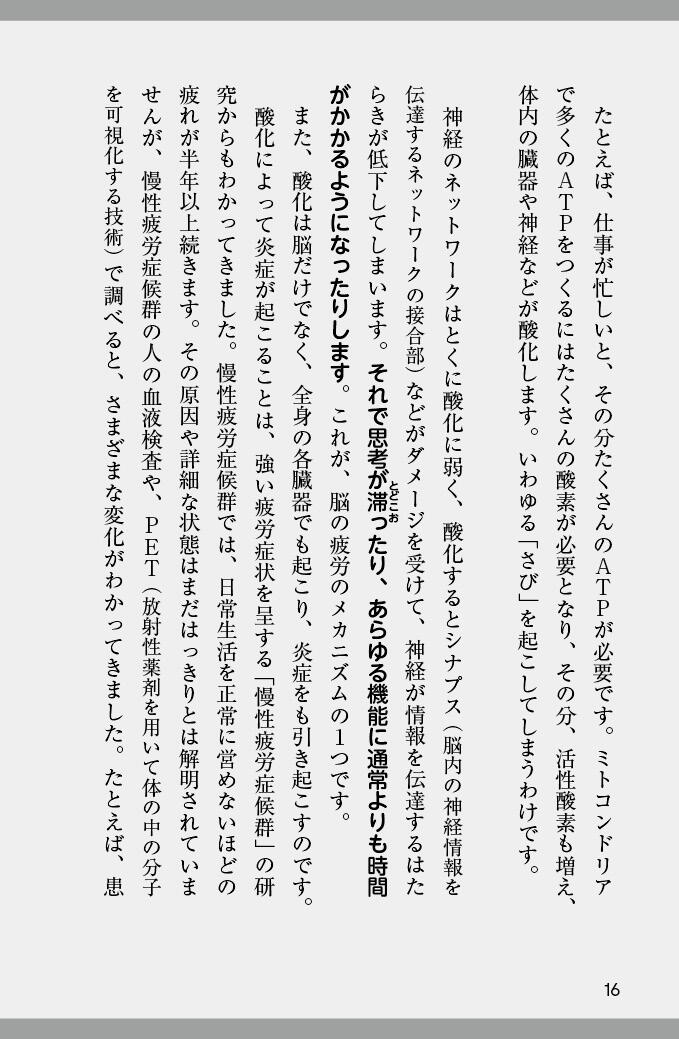 たとえば、仕事が忙しいと、その分たくさんのATPが必要です。ミトコンドリア
で多くのATPをつくるにはたくさんの酸素が必要となり、その分、活性酸素も増え、
体内の臓器や神経などが酸化します。いわゆる「さび」を起こしてしまうわけです。
神経のネットワークはとくに酸化に弱く、酸化するとシナプス（脳内の神経情報を
伝達するネットワークの接合部）などがダメージを受けて、神経が情報を伝達するはた
らきが低下してしまいます。それで思考が滞ったり、あらゆる機能に通常よりも時間
とどこお
がかかるようになったりします。これが、脳の疲労のメカニズムの1つです。
また、酸化は脳だけでなく、全身の各臓器でも起こり、炎症をも引き起こすのです。
酸化によって炎症が起こることは、強い疲労症状を呈する「慢性疲労症候群」の研
究からもわかってきました。慢性疲労症候群では、日常生活を正常に営めないほどの
疲れが半年以上続きます。その原因や詳細な状態はまだはっきりとは解明されていま
せんが、慢性疲労症候群の人の血液検査や、PET（放射性薬剤を用いて体の中の分子
を可視化する技術）で調べると、さまざまな変化がわかってきました。たとえば、患
16